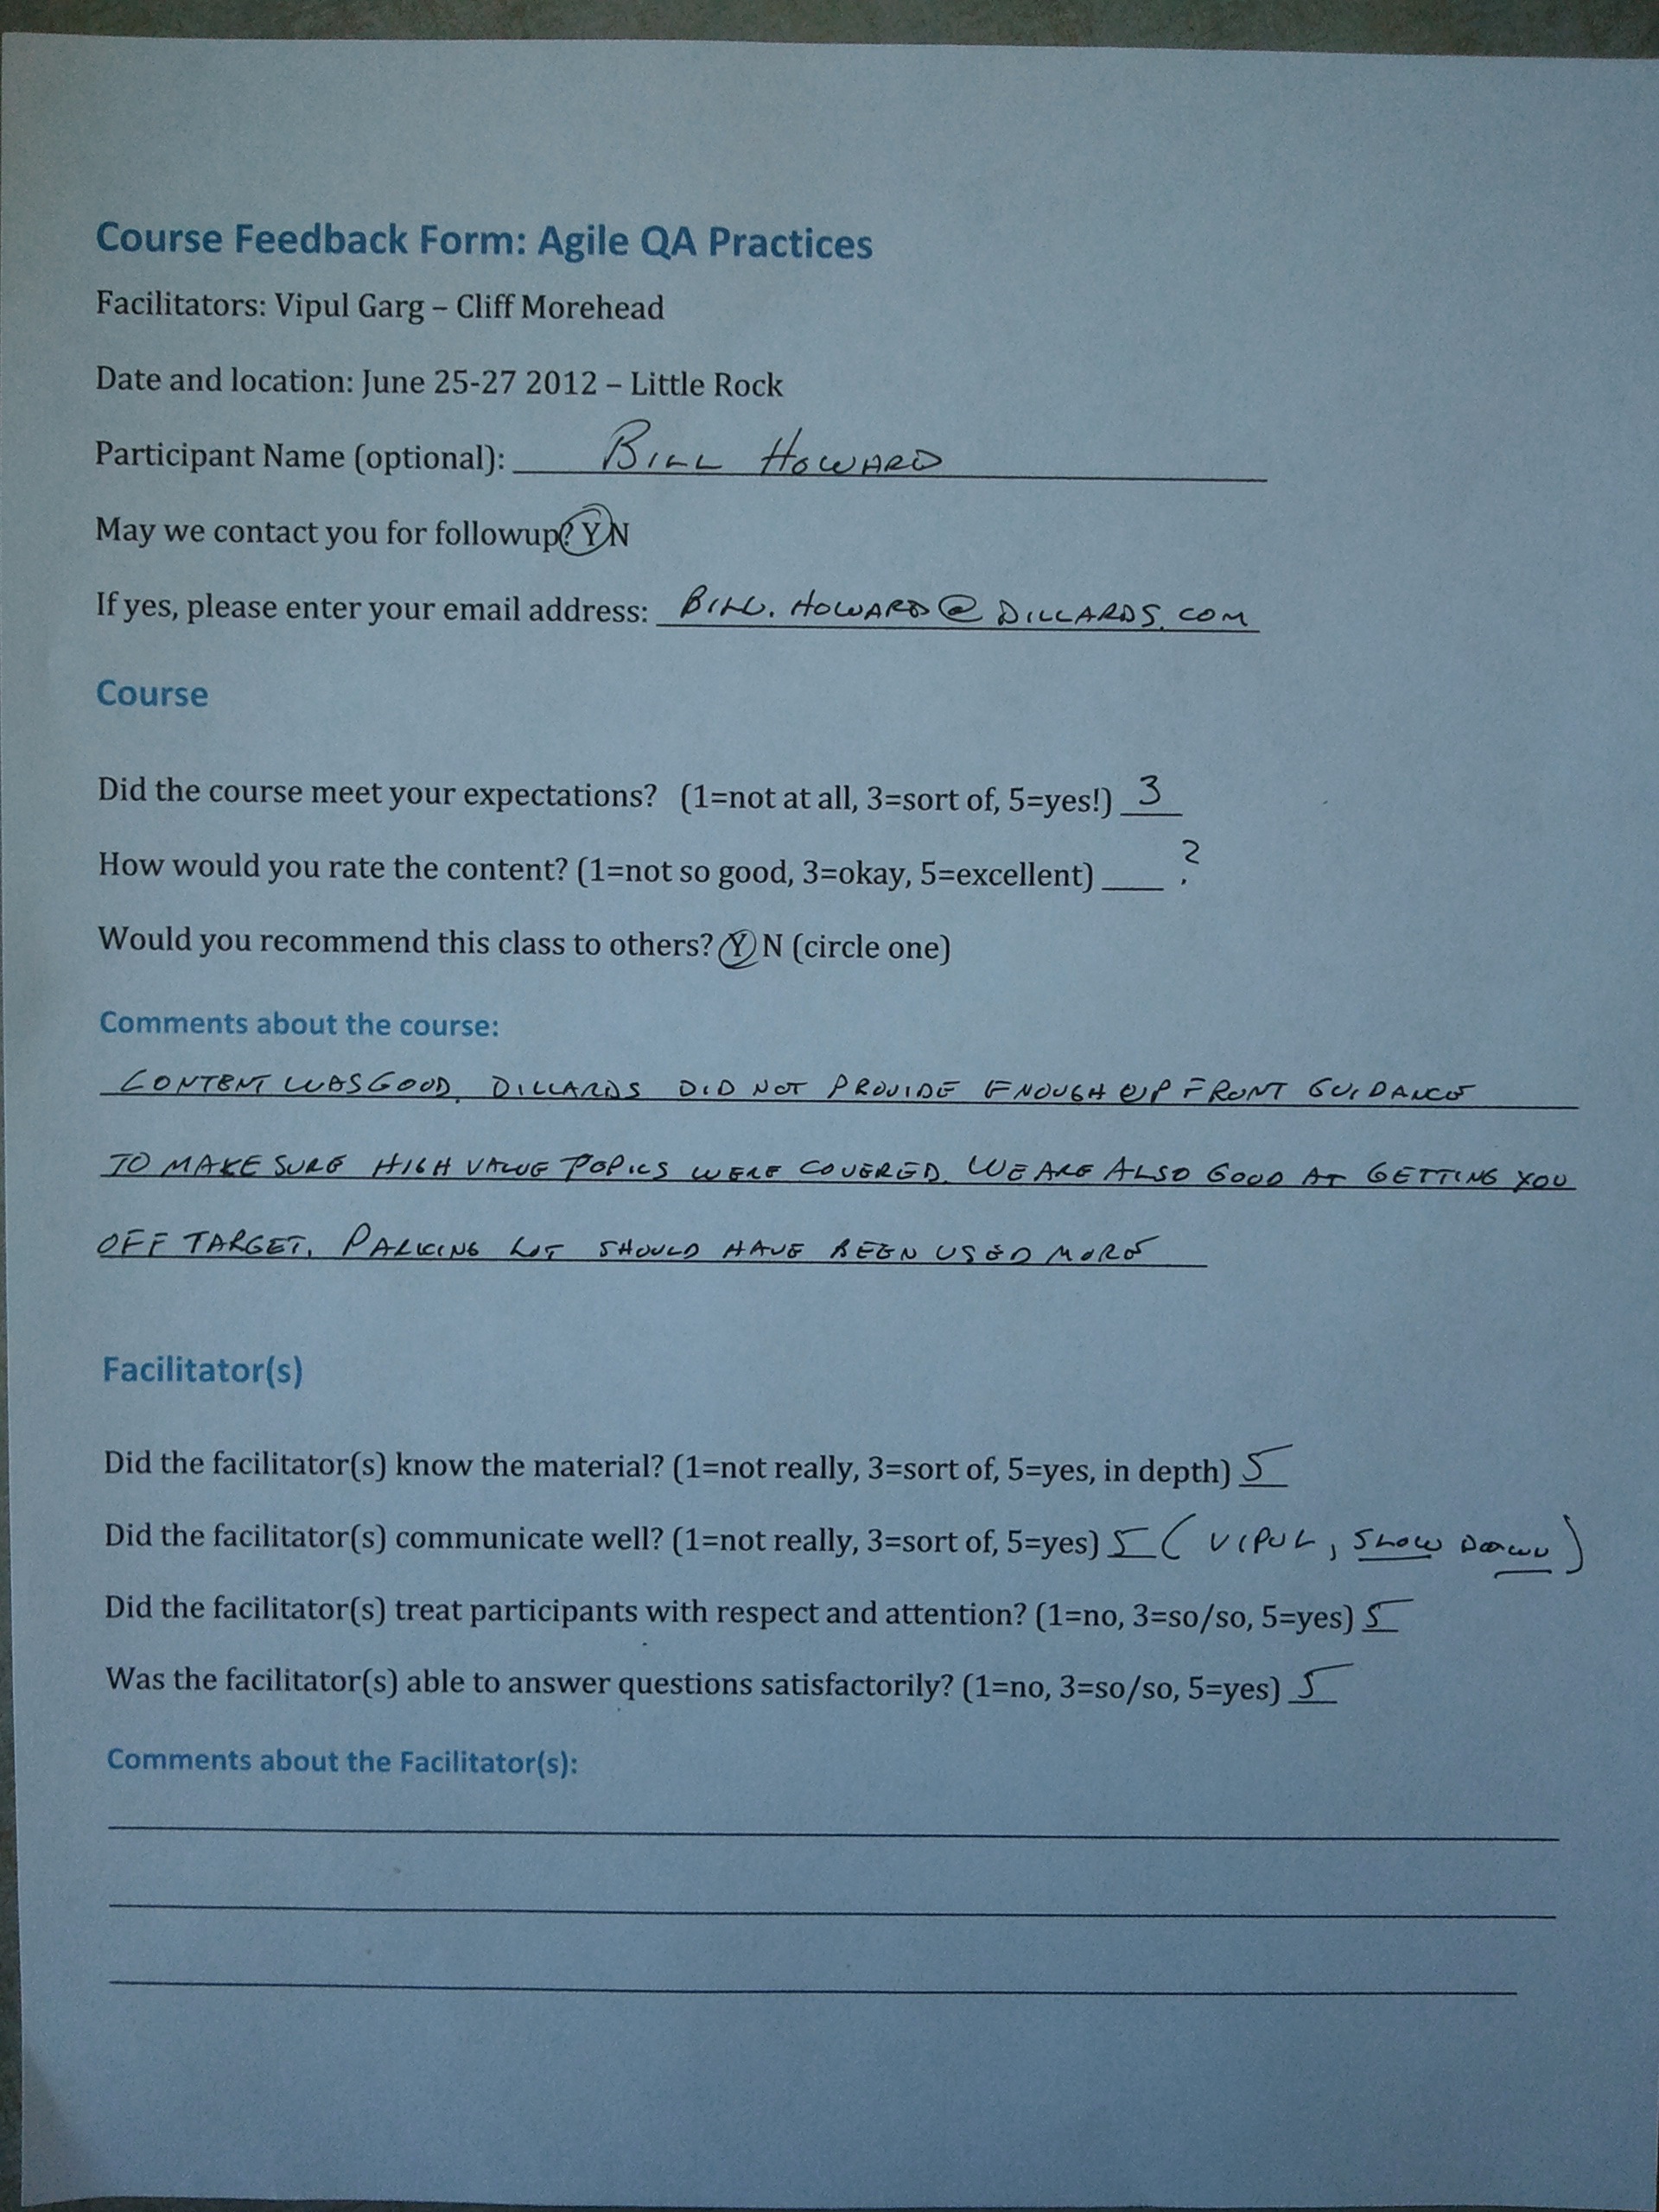 Course Feedback Form: Agile QA Practices
Facilitators: Vipul Garg – Cliff Morehead
Date and location: June 25-27 2012 – Little Rock
Participant Name (optional): BILL HOWARD
May we contact you for followup? Y N
If yes, please enter your email address: BILL.HOWARD@DILLARDS.COM
Course
Did the course meet your expectations? (1=not at all, 3=sort of, 5=yes!) 3
How would you rate the content? (1=not so good, 3=okay, 5=excellent) ____ ?
Would you recommend this class to others? Y N (circle one)
Comments about the course:
CONTENT WAS GOOD. DILLARDS DID NOT PROVIDE ENOUGH UP FRONT GUIDANCE
TO MAKE SURE HIGH VALUE TOPICS WERE COVERED. WE ARE ALSO GOOD AT GETTING YOU
OFF TARGET. PARKING LOT SHOULD HAVE BEEN USED MORE
Facilitator(s)
Did the facilitator(s) know the material? (1=not really, 3=sort of, 5=yes, in depth) 5
Did the facilitator(s) communicate well? (1=not really, 3=sort of, 5=yes) 5 (VIPUL, SLOW DOWN)
Did the facilitator(s) treat participants with respect and attention? (1=no, 3=so/so, 5=yes) 5
Was the facilitator(s) able to answer questions satisfactorily? (1=no, 3=so/so, 5=yes) 5
Comments about the Facilitator(s):